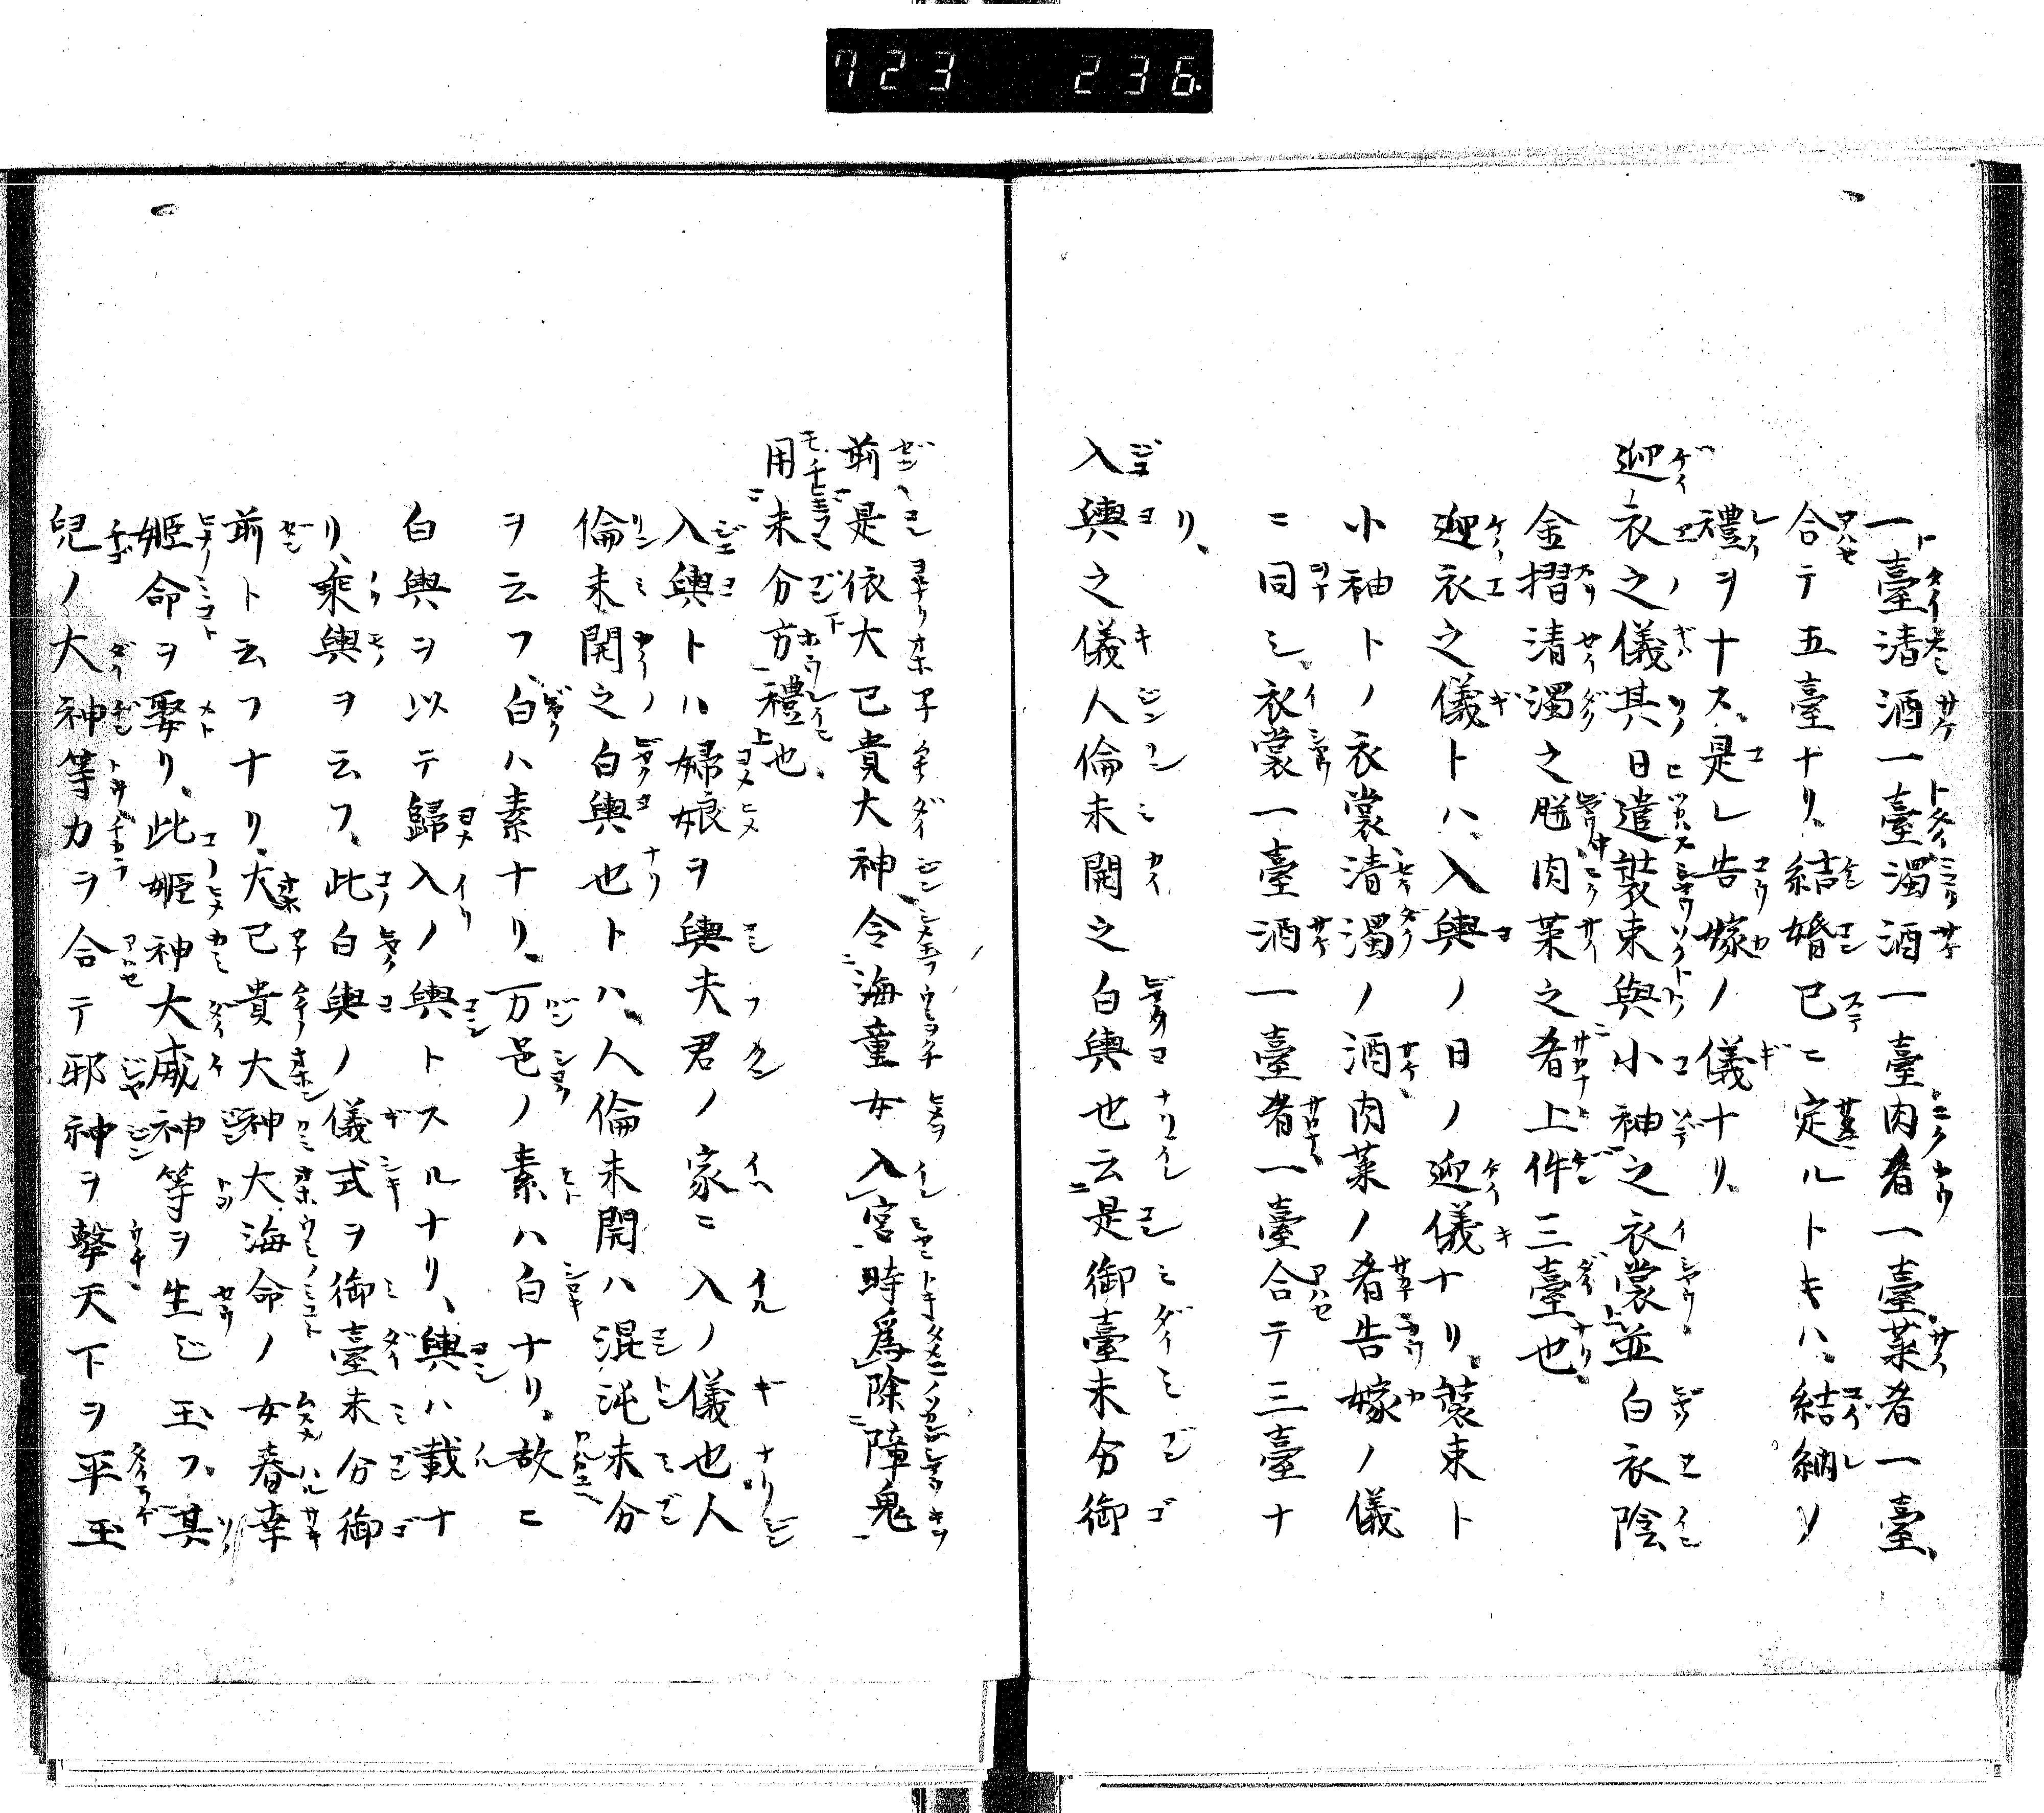 723 236
一臺清酒一臺濁酒一臺肉肴一臺菜肴一臺、
合テ五臺ナリ。結婚已ニ定ルトキハ、結納ノ
禮ヲナス。是レ告嫁ノ儀ナリ。
迎衣之儀其日遣裝束與小袖之衣裳並白衣陰
金摺清濁之胜肉菜之肴上件三臺也。
迎衣之儀トハ、入輿ノ日ノ迎儀ナリ。裝束ト
小袖トノ衣裳清濁ノ酒肉菜ノ肴告嫁ノ儀
ニ同シ。衣裳一臺酒一臺肴一臺合テ三臺ナ
リ、
入輿之儀人倫未開之白輿也云是御臺未分御
前是依大已貴大神令海童女入宮時爲除障鬼
用未分方禮也。
入輿トハ婦娘ヲ輿夫君ノ家ニ入ノ儀也人
倫未開之白輿也トハ、人倫未開ハ混沌未分
ヲ云フ、白ハ素ナリ。万邑ノ素ハ白ナリ。故ニ
白輿ヲ以テ歸入ノ輿トスルナリ、輿ハ載ナ
リ、乘輿ヲ云フ。此白輿ノ儀式ヲ御臺未分御
前ト云フナリ。大已貴大神大海命ノ女春幸
姫命ヲ娶リ。此姫神大威神等ヲ生ジ玉フ。其
兒ノ大神等力ヲ合テ邪神ヲ擊天下ヲ平玉